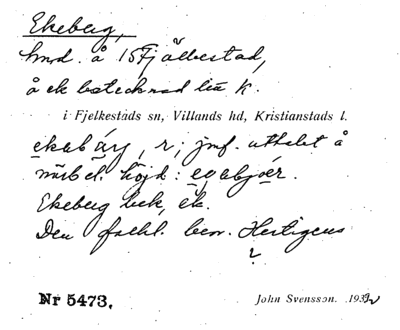 Ekeberg,
hmd. å 15 Fjälkestad,
å ek betecknad litt K.
i Fjelkestads sn, Villands hd, Kristianstads l.
ekabárg, r; jmf. uttalet å
höjd:
Ekeberg bek, ek.
Den folkl. ben. Hertigens
?
Nr 5473.
John Svensson. 1932